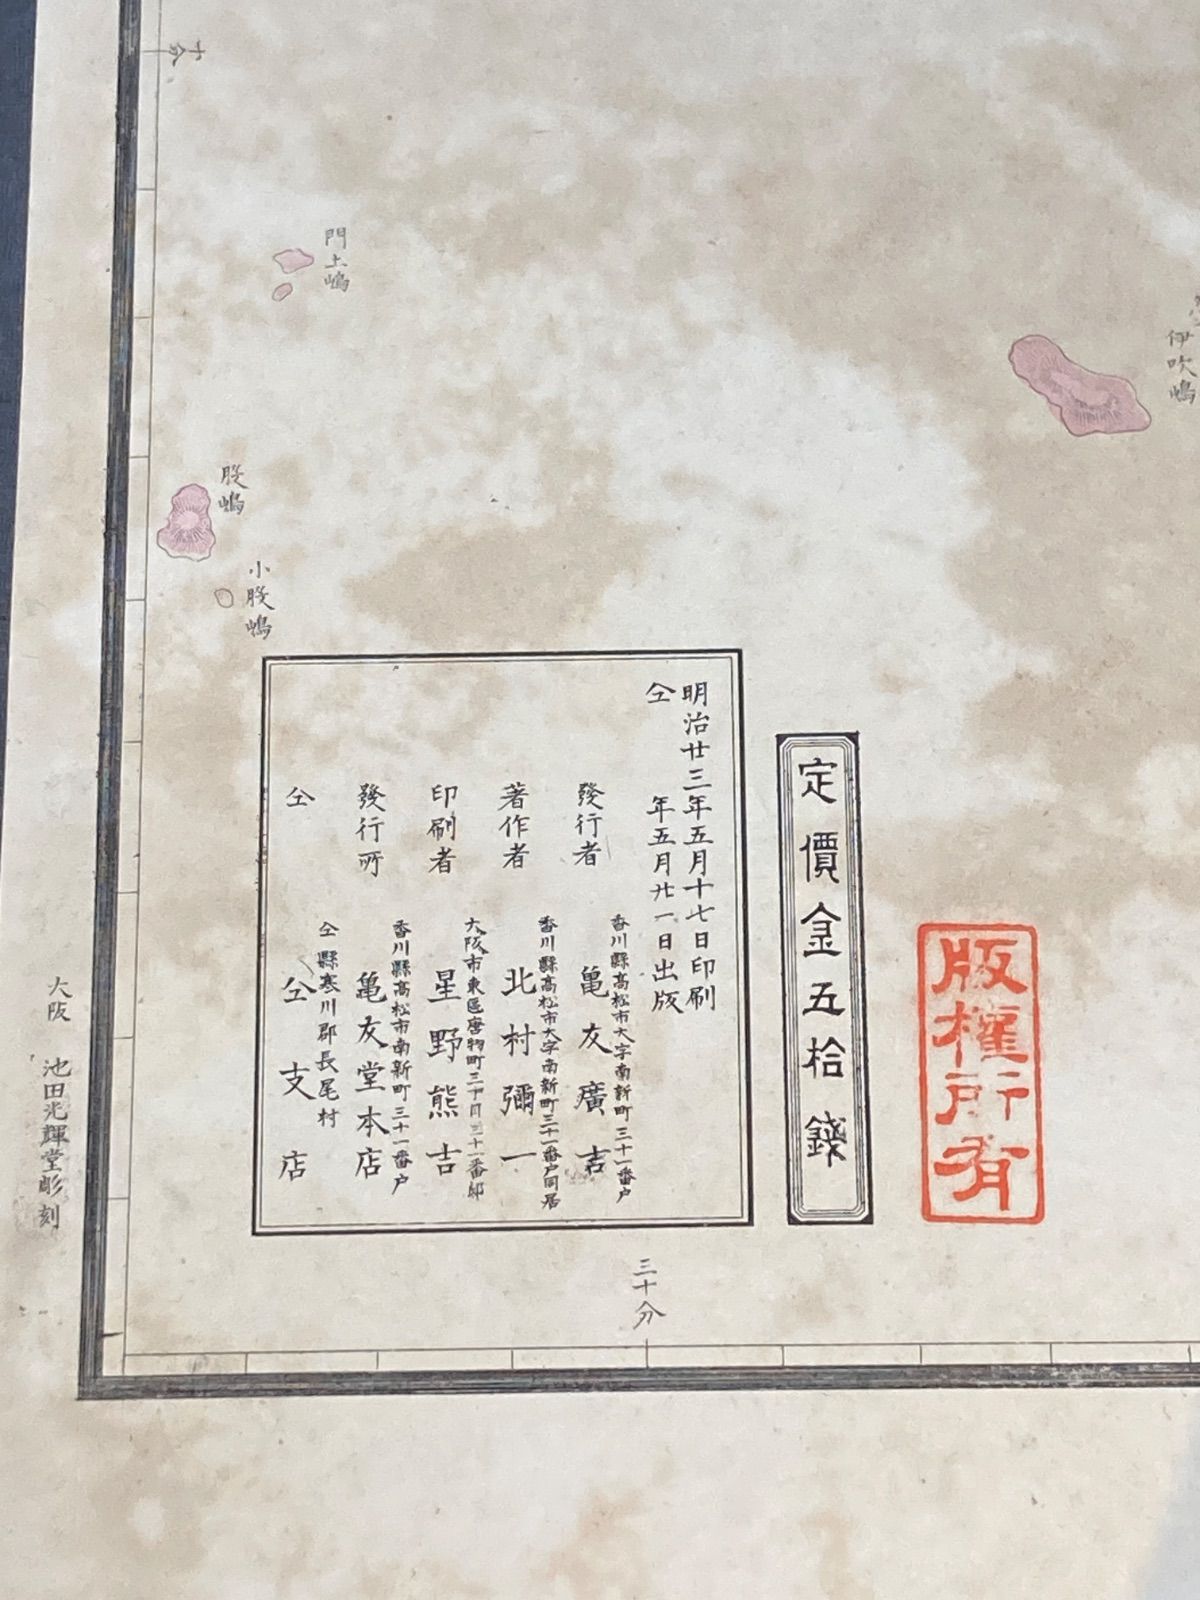 版權所有
定價金五拾錢
明治廿三年五月十七日印刷
仝年五月廿一日出版
發行者
香川縣髙松市大字南新町三十一番户
亀友廣吉
著作者
香川縣髙松市大字南新町三十一番户同居
北村彌一
印刷者
大阪市東區唐物町三丁目三十一番邸
星野熊吉
發行所
香川縣髙松市南新町三十一番户
亀友堂本店
仝
仝縣寒川郡長尾村
仝支店
伊吹嶋
門土嶋
股嶋
小股嶋
十分
三十分
大阪 池田光輝堂彫刻